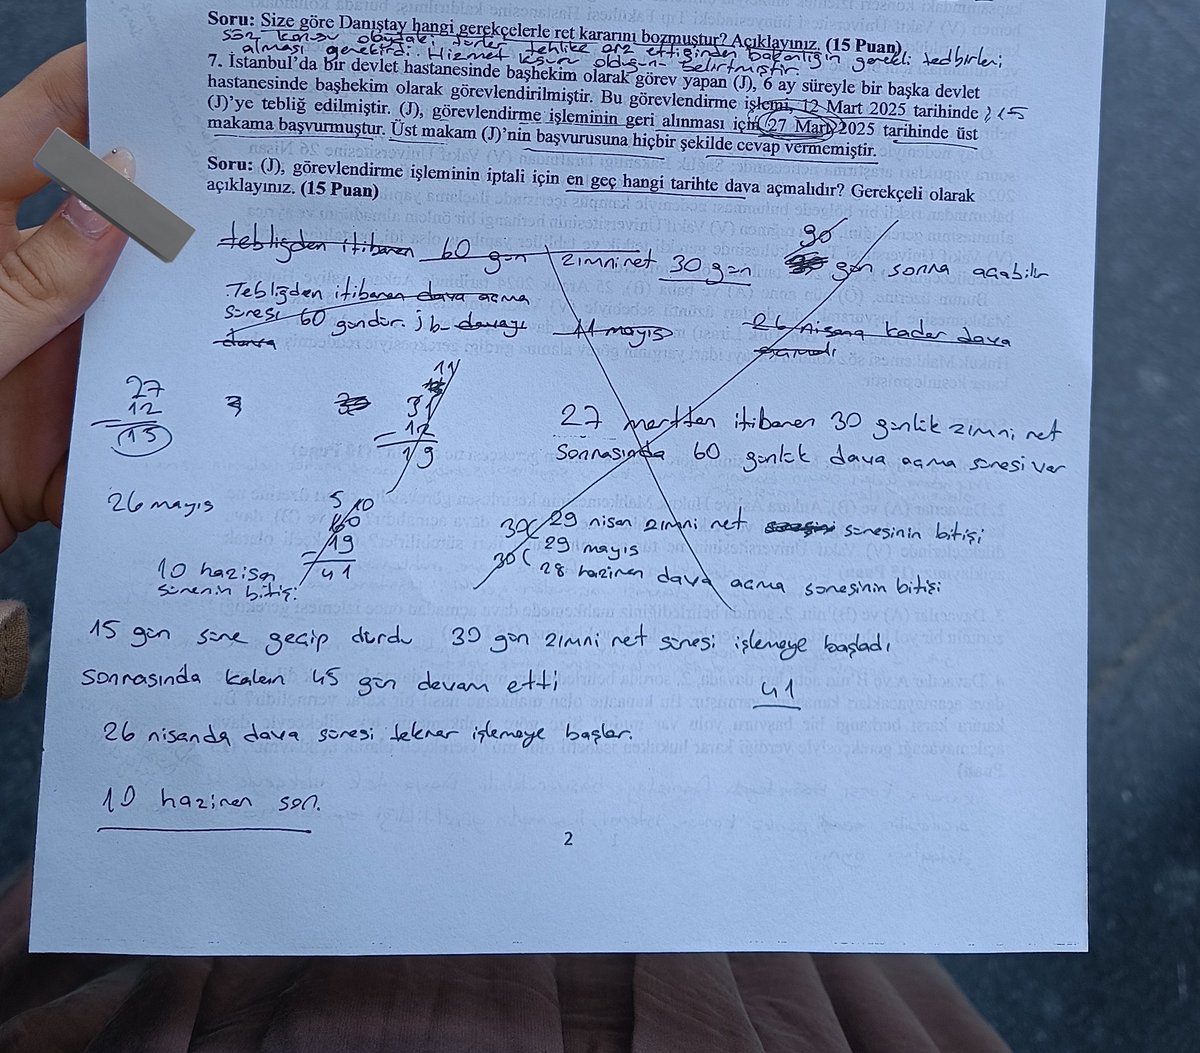 Soru: Size göre Danıştay hangi gerekçelerle ret kararını bozmuştur? Açıklayınız. (15 Puan)
söz konusu olaydaki türler tehlike arz ettiğinden bakanlığın gerekli tedbirleri
alması gerekirdi. Hizmet kusuru olduğunu belirtmiştir.
7. İstanbul'da bir devlet hastanesinde başhekim olarak görev yapan (J), 6 ay süreyle bir başka devlet
hastanesinde başhekim olarak görevlendirilmiştir. Bu görevlendirme işlemi, 12 Mart 2025 tarihinde
(J)'ye tebliğ edilmiştir. (J), görevlendirme işleminin geri alınması için 27 Mart 2025 tarihinde üst
makama başvurmuştur. Üst makam (J)'nin başvurusuna hiçbir şekilde cevap vermemiştir.
Soru: (J), görevlendirme işleminin iptali için en geç hangi tarihte dava açmalıdır? Gerekçeli olarak
açıklayınız. (15 Puan)
tebliğden itibaren 60 gün zımni ret 30 gün 30 gün sonra açabilir
Tebliğden itibaren dava açma
süresi 60 gündür. davayı 11 mayıs 26 nisana kadar dava
dava
27
12
15
11
31
12
19
27 marttan itibaren 30 günlük zımni ret
Sonrasında 60 günlük dava açma süresi var
26 mayıs
5 10
60
19
41
30 29 nisan zımni ret süresinin bitişi
30 29 mayıs
28 haziran dava açma süresinin bitişi
10 haziran
sürenin bitişi
15 gün süre geçip durdu 30 gün zımni ret süresi işlemeye başladı
Sonrasında kalan 45 gün devam etti
41
26 nisanda dava süresi tekrar işlemeye başlar.
10 haziran son.
2